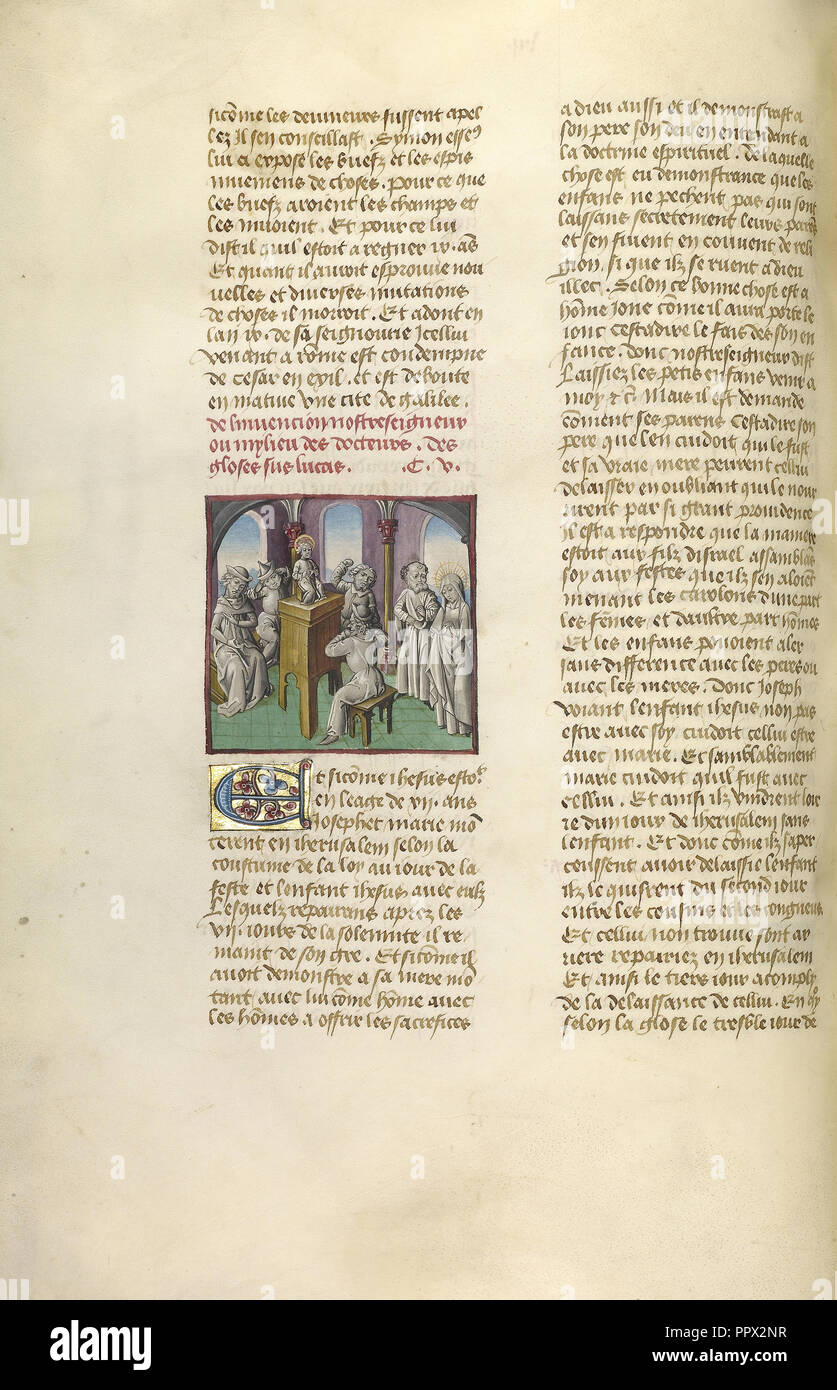 sicõme les devineurs fussent apel
lez Il sen conseillast. Symon esseꝰ
lui a exposé les buefz et les espis
muemens de choses. pour ce que
les buefz aroient les champs et
les muoient. Et pour ce lui
dist il quil estoit a regner ix. ãs
Et quant il auroit esprouue nou
uelles et diuerses mutations
de choses il morroit. Et adont en
lan ix. de sa seignourie Icellui
venant a rõme est condempne
de cesar en exil. et est deboute
en
vne cite de galilee.
de linuencion nostreseigneur
ou mylieu des docteurs. des
gloses sus lucas. .C. v.
Et sicõme ihesus
en leage de vij. ans
Joseph et marie mõ
terent en iherusalem selon la
coustume de la loy au iour de la
feste et lenfant ihesus auec eulz
Lesquelz repairans aprez les
vij. iours de la solemnite il re
manit de son gre. Et sicõme il
auoit demonstre a sa mere mõ
tant auec lui cõme hõme auec
les hõmes a offrir les sacrefices
a dieu aussi et il demonstrast a
son pere son deu en entendant a
la doctrine espirituel. de laquelle
chose est eu demonstrance que les
enfans ne pechent pas qui sont
laissans secretement leurs parẽs
et sen fuient en couuent de reli
gion, si que ilz se ruent a dieu
illec. Selon ce bonne chose est a
hõme Jone cõme il aura porte le
ionc cestadire le fais des son en
fance. donc nostreseigneur dist
Laissiez les petis enfans venir a
moy &c̃. Mais il est demande
cõment ses parens cestadire son
pere que len cuidoit qui le fust
et sa vraie mere peurent cellui
delaisser en oubliant qui le nour
rirent par si grant prouidence
Il est a respondre que la maniere
estoit aux filz disrael assamblãs
soy aux festes que ilz sen aloient
menant les carolons dune part
les fẽmes, et daultre part hõmes
Et les enfans pouoient aler
sans difference auec les peres ou
auec les meres. Donc Joseph
voiant lenfant ihesus non pas
estre auec soy cuidoit cellui estre
auec marie. Et samblablement
marie cuidoit quil fust auec
cellui. Et ainsi ilz vindrent loir
re dun iour de iherusalem sans
lenfant. Et donc cõme ilz saper
ceussent auoir delaissie lenfant
ilz le quisrent du second iour
entre les cousins et les congneus
Et cellui non trouue sont ar
riere repairiez en iherusalem
Et ainsi le tiers iour acomply
de la delaissance de cellui. En
selon la glose le
iour de
alamy
alamy
Image ID: PPX2NR
www.alamy.com